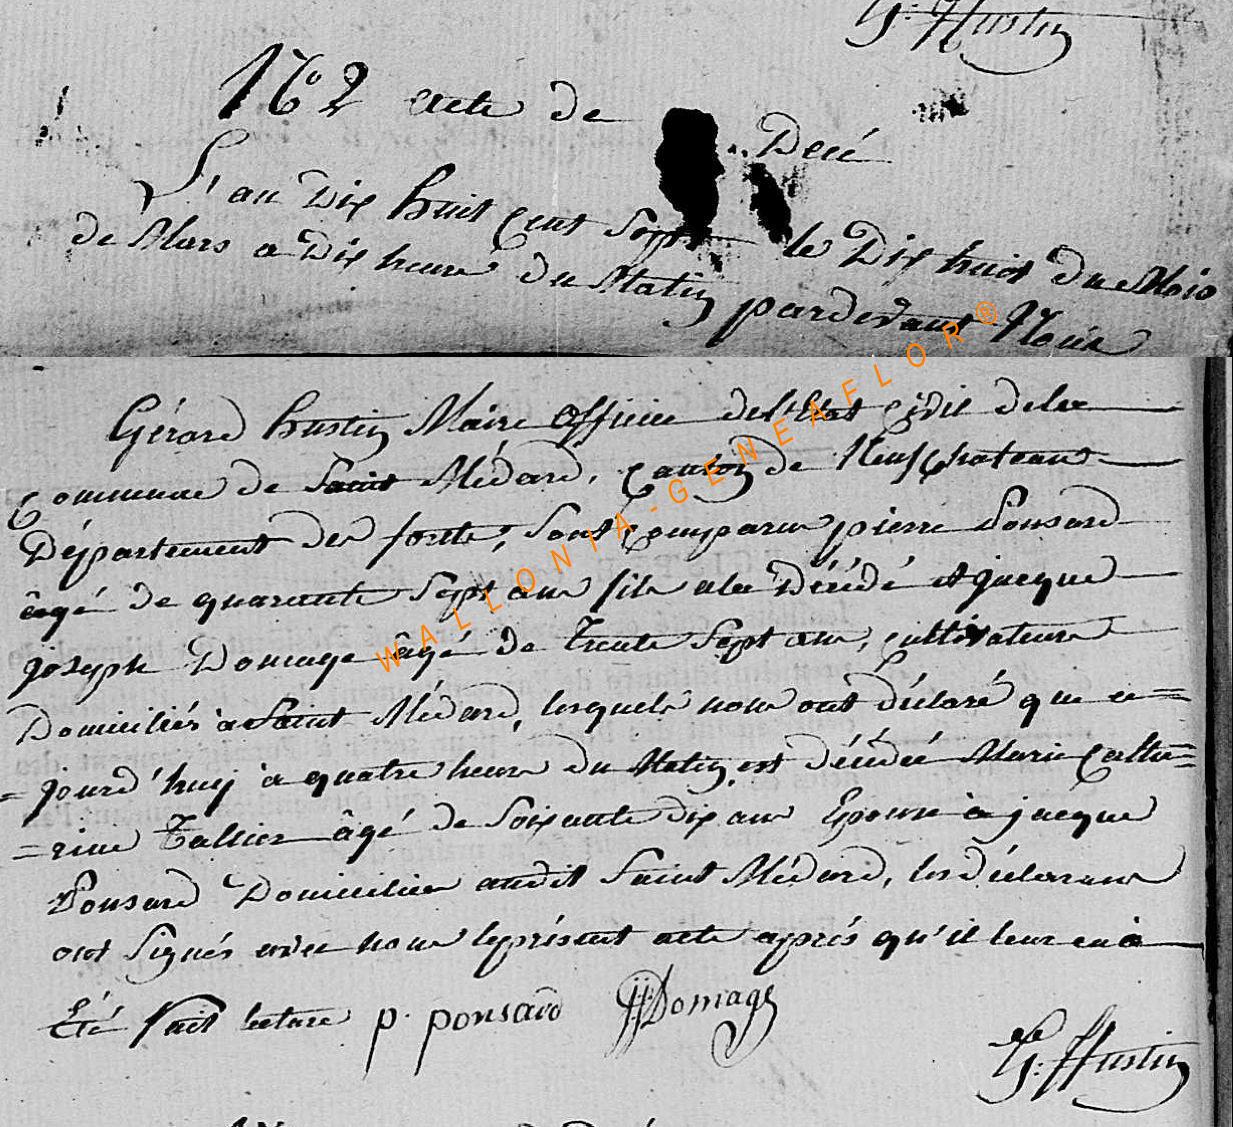 G: Hustin
No 2 acte de Decé
L'an Dix huit cent Sept le Dix huit du Mois
de Mars a Dix heure du Matin pardevant Nous
Gérard hustin Maire Officier de l'Etat Civil de la
Commune de Saint Médard, Canton de Neufchateau
Département des forêts, Sont Comparus pierre Ponsard
âgé de quarante Sept ans fils a la Décédé et jacque
joseph Domage âgé de Trente Sept ans, cultivateurs
Domiciliés à Saint Médard, lesquels nous ont déclaré que ce=
=jourd'huy à quatre heure du Matin, est décédée Marie Cathe=
=rine Tallier âgé de Soixante dix ans Epouse à jacque
Ponsard Domiciliés audit Saint Médard, les déclarans
ont Signés avec nous le présent acte aprés qu'il leur en à
Eté fait lecture p. ponsard JJ: Domage
G: Hustin
WALLONIA-GENEAFLOR®